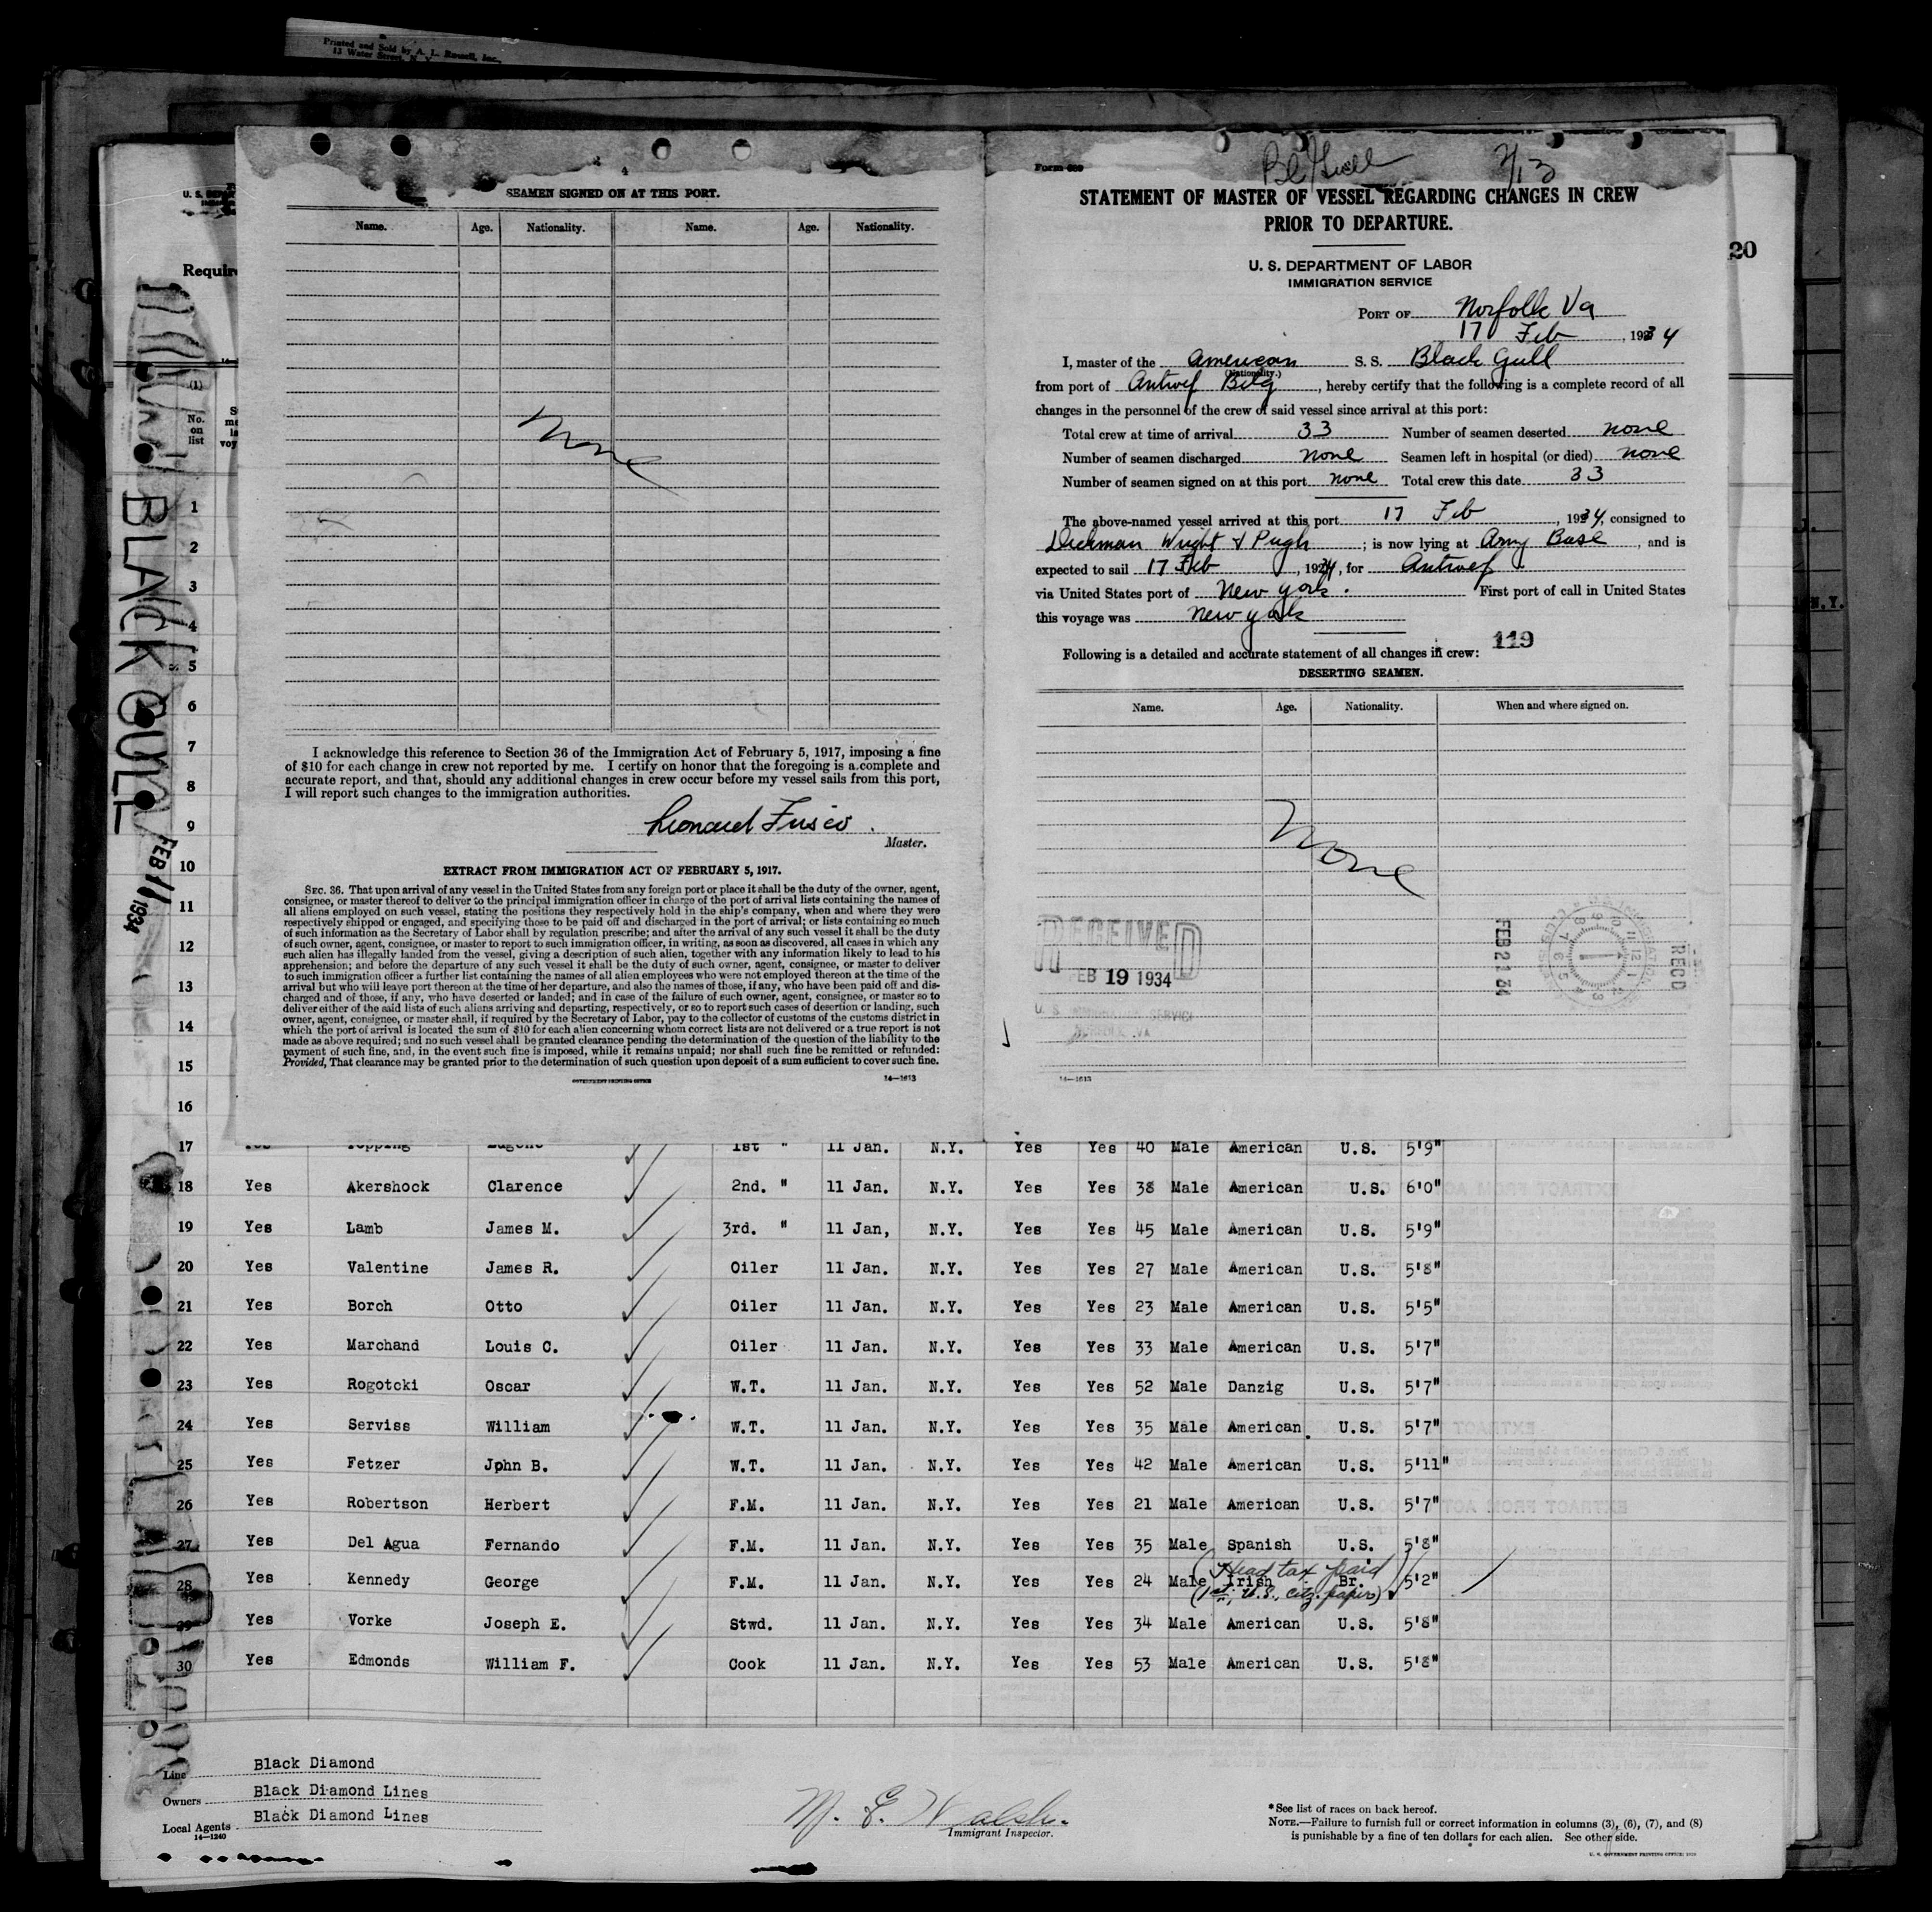 Printed and Sold by A. L. Russell, Inc.,
13 Water Street, N. Y.
4
SEAMEN SIGNED ON AT THIS PORT.
Name. Age. Nationality. Name. Age. Nationality.
None
I acknowledge this reference to Section 36 of the Immigration Act of February 5, 1917, imposing a fine
of $10 for each change in crew not reported by me. I certify on honor that the foregoing is a complete and
accurate report, and that, should any additional changes in crew occur before my vessel sails from this port,
I will report such changes to the immigration authorities.
Leonard Fusco.
Master.
EXTRACT FROM IMMIGRATION ACT OF FEBRUARY 5, 1917.
SEC. 36. That upon arrival of any vessel in the United States from any foreign port or place it shall be the duty of the owner, agent,
consignee, or master thereof to deliver to the principal immigration officer in charge of the port of arrival lists containing the names of
all aliens employed on such vessel, stating the positions they respectively hold in the ship's company, when and where they were
respectively shipped or engaged, and specifying those to be paid off and discharged in the port of arrival; or lists containing so much
of such information as the Secretary of Labor shall by regulation prescribe; and after the arrival of any such vessel it shall be the duty
of such owner, agent, consignee, or master to report to such immigration officer, in writing, as soon as discovered, all cases in which any
such alien has illegally landed from the vessel, giving a description of such alien, together with any information likely to lead to his
apprehension; and before the departure of any such vessel it shall be the duty of such owner, agent, consignee, or master to deliver
to such immigration officer a further list containing the names of all alien employees who were not employed thereon at the time of the
arrival but who will leave port thereon at the time of her departure, and also the names of those, if any, who have been paid off and dis-
charged and of those, if any, who have deserted or landed; and in case of the failure of such owner, agent, consignee, or master so to
deliver either of the said lists of such aliens arriving and departing, respectively, or so to report such cases of desertion or landing, such
owner, agent, consignee, or master shall, if required by the Secretary of Labor, pay to the collector of customs of the customs district in
which the port of arrival is located the sum of $10 for each alien concerning whom correct lists are not delivered or a true report is not
made as above required; and no such vessel shall be granted clearance pending the determination of the question of the liability to the
payment of such fine, and, in the event such fine is imposed, while it remains unpaid; nor shall such fine be remitted or refunded:
Provided, That clearance may be granted prior to the determination of such question upon deposit of a sum sufficient to cover such fine.
GOVERNMENT PRINTING OFFICE 14—1613
Form 689
Bl/Gull 2/13
STATEMENT OF MASTER OF VESSEL REGARDING CHANGES IN CREW
PRIOR TO DEPARTURE.
U. S. DEPARTMENT OF LABOR
IMMIGRATION SERVICE
PORT OF Norfolk Va
17 Feb, 1934
I, master of the American S. S. Black Gull
(Nationality.)
from port of Antwef Belg, hereby certify that the following is a complete record of all
changes in the personnel of the crew of said vessel since arrival at this port:
Total crew at time of arrival 33 Number of seamen deserted none
Number of seamen discharged none Seamen left in hospital (or died) none
Number of seamen signed on at this port none Total crew this date 33
The above-named vessel arrived at this port 17 Feb, 1934, consigned to
Dickman Wright & Pugh; is now lying at Army Base, and is
expected to sail 17 Feb, 1934, for Antwef
via United States port of New York. First port of call in United States
this voyage was New York
119
Following is a detailed and accurate statement of all changes in crew:
DESERTING SEAMEN.
Name. Age. Nationality. When and where signed on.
None
RECEIVED
FEB 19 1934
U. S. SERVICE
NORFOLK VA
FEB 21 34
REC'D
14—1613
U. S.
Requir
20
(1)
No.
on
list
BLACK GULL
FEB 11 1934
N.Y.
1
2
3
4
5
6
7
8
9
10
11
12
13
14
15
16
17 Yes Topping Eugene 1st " 11 Jan. N.Y. Yes Yes 40 Male American U.S. 5'9"
18 Yes Akershock Clarence 2nd. " 11 Jan. N.Y. Yes Yes 38 Male American U.S. 6'0"
19 Yes Lamb James M. 3rd. " 11 Jan, N.Y. Yes Yes 45 Male American U.S. 5'9"
20 Yes Valentine James R. Oiler 11 Jan. N.Y. Yes Yes 27 Male American U.S. 5'8"
21 Yes Borch Otto Oiler 11 Jan. N.Y. Yes Yes 23 Male American U.S. 5'5"
22 Yes Marchand Louis C. Oiler 11 Jan. N.Y. Yes Yes 33 Male American U.S. 5'7"
23 Yes Rogotcki Oscar W.T. 11 Jan. N.Y. Yes Yes 52 Male Danzig U.S. 5'7"
24 Yes Serviss William W.T. 11 Jan. N.Y. Yes Yes 35 Male American U.S. 5'7"
25 Yes Fetzer Jphn B. W.T. 11 Jan. N.Y. Yes Yes 42 Male American U.S. 5'11"
26 Yes Robertson Herbert F.M. 11 Jan. N.Y. Yes Yes 21 Male American U.S. 5'7"
27 Yes Del Agua Fernando F.M. 11 Jan. N.Y. Yes Yes 35 Male Spanish U.S. 5'8"
(Head tax paid)
28 Yes Kennedy George F.M. 11 Jan. N.Y. Yes Yes 24 Male Irish Br. 5'2"
(1st. U.S. citz. papers)
29 Yes Vorke Joseph E. Stwd. 11 Jan. N.Y. Yes Yes 34 Male American U.S. 5'8"
30 Yes Edmonds William F. Cook 11 Jan. N.Y. Yes Yes 53 Male American U.S. 5'8"
Line Black Diamond
Owners Black Diamond Lines
Local Agents Black Diamond Lines
14—1240
M. E. Walsh.
Immigrant Inspector.
*See list of races on back hereof.
NOTE.—Failure to furnish full or correct information in columns (3), (6), (7), and (8)
is punishable by a fine of ten dollars for each alien. See other side.
U. S. GOVERNMENT PRINTING OFFICE